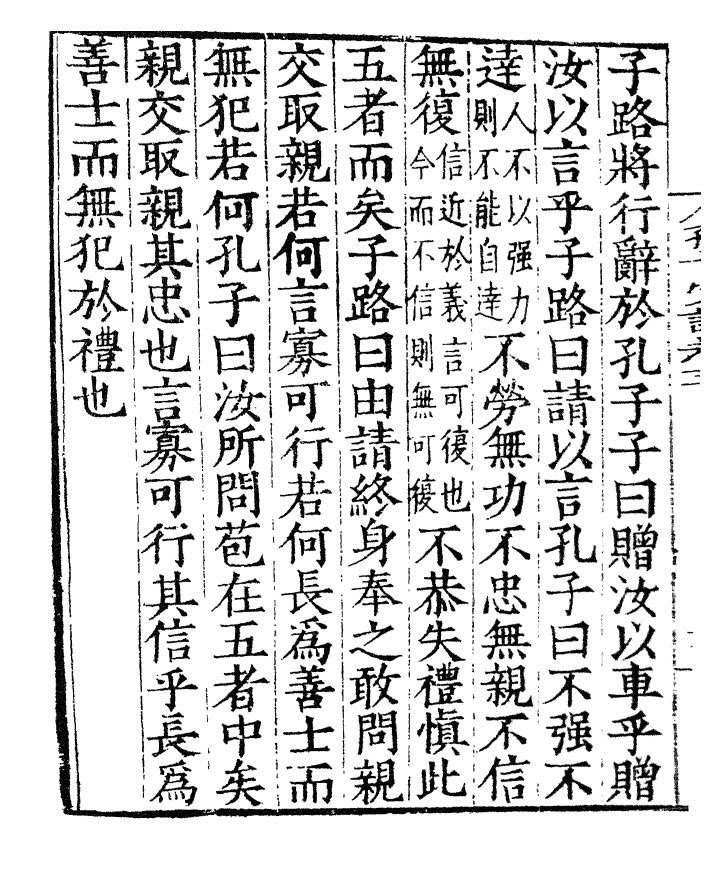 子路將行辭於孔子子曰贈汝以車乎贈
汝以言乎子路曰請以言孔子曰不强不
達人不以强力則不能自達不勞無功不忠無親不信
無復信近於義言可復也今而不信則無可復不恭失禮慎此
五者而矣子路曰由請終身奉之敢問親
交取親若何言寡可行若何長爲善士而
無犯若何孔子曰汝所問苞在五者中矣
親交取親其忠也言寡可行其信乎長爲
善士而無犯於禮也